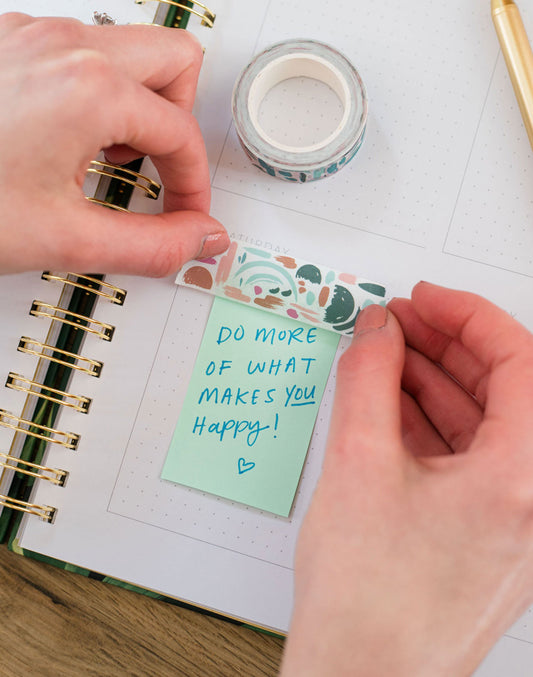 DO MORE
OF WHAT
MAKES YOU
Happy!